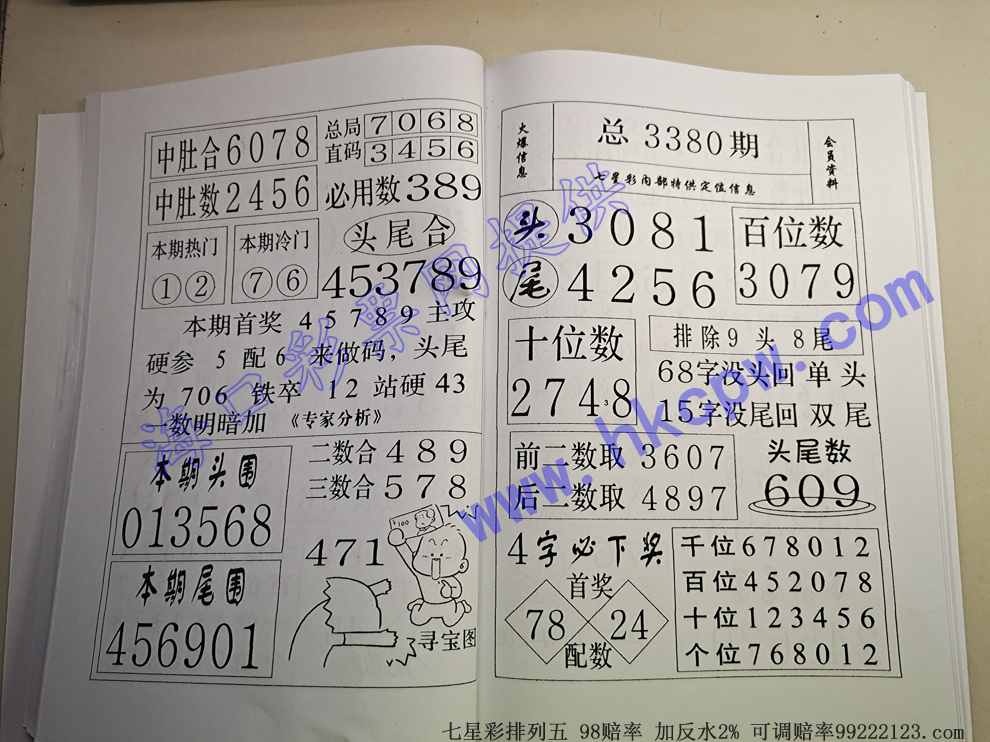 中肚合6078
总局7068
直码3456
中肚数2456
必用数389
本期热门
①②
本期冷门
⑦⑥
头尾合
453789
本期首奖 45789 主攻
硬参 5 配 6 来做码，头尾
为 706 铁卒 12 站硬 43
一数明暗加 《专家分析》
本期头围
013568
二数合 489
三数合 578
471
¥100
寻宝图
本期尾围
456901
火爆信息
总 3380 期
七星彩内部特供定位信息
会员资料
头 3081
尾 4256
百位数
3079
十位数
2748
3
排除9头8尾
68字没头回 单 头
15字没尾回 双 尾
前二数取 3607
后二数取 4897
头尾数
609
4字必下奖
首奖
78 24
配数
千位678012
百位452078
十位123456
个位768012
海口彩票网提供
www.hkcpw.com
七星彩排列五 98赔率 加反水2% 可调赔率99222123.com